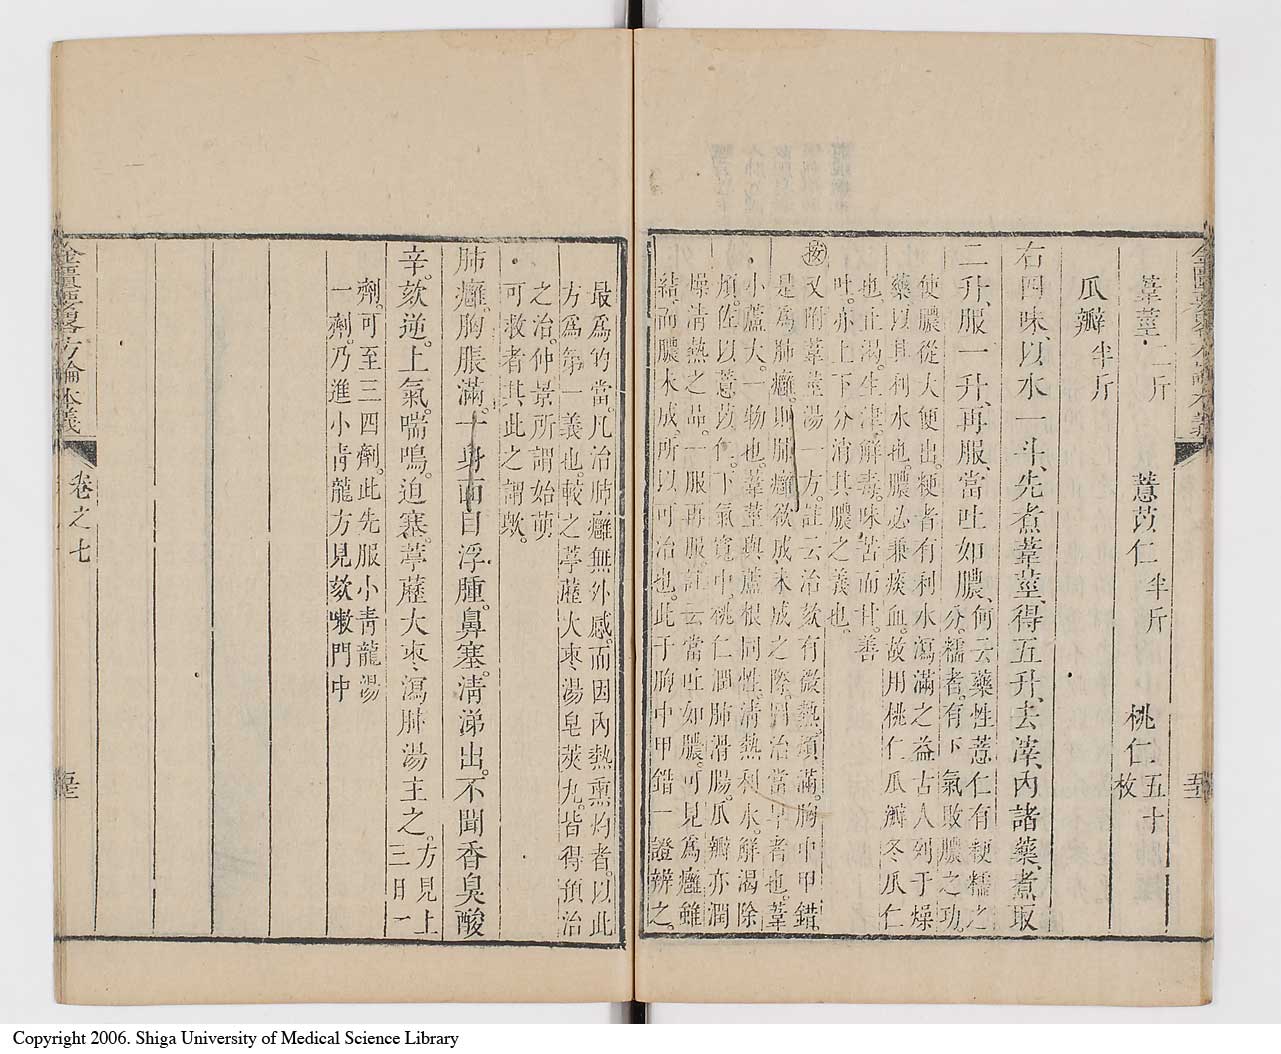 葦莖二斤　薏苡仁半斤　桃仁五十枚
瓜瓣半斤
右四味、以水一斗、先煮葦莖、得五升、去滓、內諸藥、煮取
二升、服一升、再服、當吐如膿、何云藥性薏仁有粳糯之
分。糯者。有下氣敗膿之功。
使膿從大便出。粳者有利水瀉滿之益古人列于燥
藥以其利水也。膿必兼痰血。故用桃仁瓜瓣冬瓜仁
也止渴。生津。解毒。味苦而甘。善
吐。亦上下分消其膿之義也。
按又附葦莖湯一方。註云治欬有微熱。煩滿。胸中甲錯。
是為肺癰。則肺癰欲成未成之際。圖治當早者也。葦
小蘆大。一物也。葦莖與蘆根同性。清熱利水。解渴除
煩。佐以薏苡仁。下氣寬中。桃仁潤肺滑腸。瓜瓣亦潤
燥清熱之品。一服再服。註云當吐如膿。可見為癰雖
結。而膿未成。所以可治也。此于胸中甲錯一證辨之。
最為的當。凡治肺癰無外感。而因內熱熏灼者。以此
方為第一義也。較之葶藶大棗湯皂莢丸。皆得預治
之治。仲景所謂始萌
可救者。其此之謂歟。
肺癰。胸脹滿。一身面目浮腫。鼻塞。清涕出。不聞香臭酸
辛。欬逆。上氣。喘鳴。迫塞。葶藶大棗瀉肺湯主之。方見上
三日一
劑。可至三四劑。此先服小青龍湯
一劑。乃進小青龍方見欬嗽門中
金匱要畧方論本義
卷之七
Copyright 2006. Shiga University of Medical Science Library